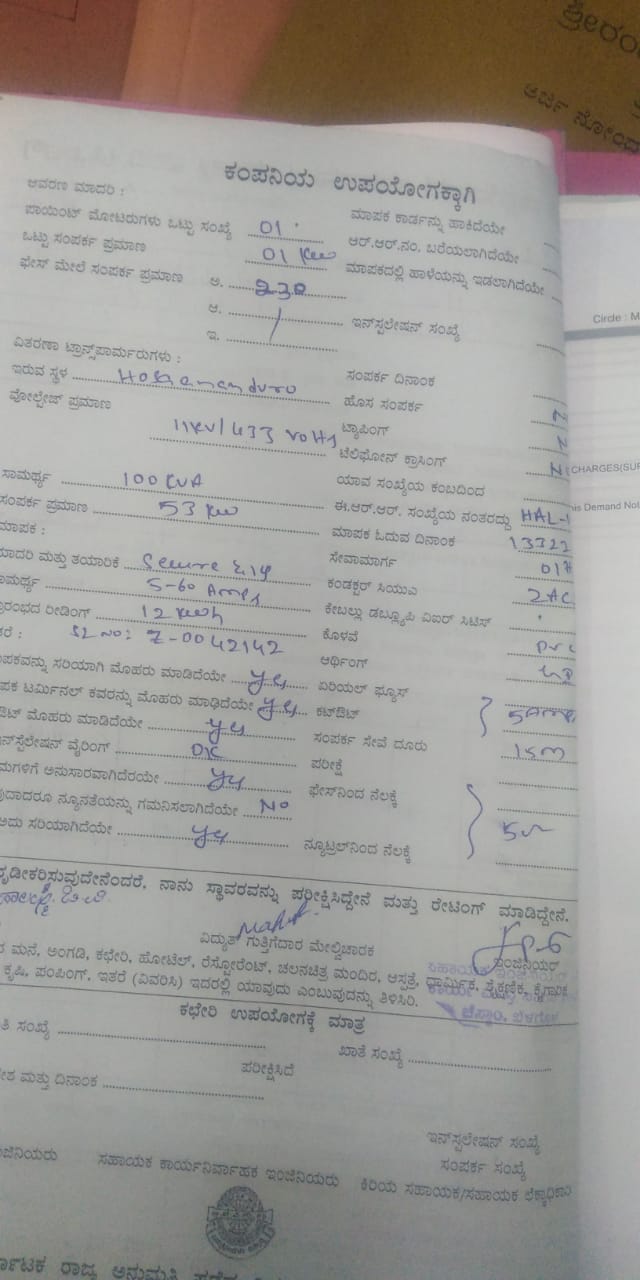 ಶ್ರೀರಂ
ಅರ್ಜಿ ನೋಂದ
ಕಂಪನಿಯ ಉಪಯೋಗಕ್ಕಾಗಿ
ಆವರಣ ಮಾದರಿ :
ಮಾಪಕ ಕಾರ್ಡನ್ನು ಹಾಕಿದೆಯೇ
ಪಾಯಿಂಟ್ ಮೋಟರುಗಳು ಒಟ್ಟು ಸಂಖ್ಯೆ 01
ಆರ್.ಆರ್.ನಂ. ಬರೆಯಲಾಗಿದೆಯೇ
ಒಟ್ಟು ಸಂಪರ್ಕ ಪ್ರಮಾಣ 01 Kw
ಮಾಪಕದಲ್ಲಿ ಹಾಳೆಯನ್ನು ಇಡಲಾಗಿದೆಯೇ
ಫೇಸ್ ಮೇಲೆ ಸಂಪರ್ಕ ಪ್ರಮಾಣ ಅ. 230
ಆ.
ಇನ್‌ಸ್ಟಲೇಷನ್ ಸಂಖ್ಯೆ
ಇ.
Circle : M
ವಿತರಣಾ ಟ್ರಾನ್ಸ್‌ಪಾರ್ಮರುಗಳು :
ಸಂಪರ್ಕ ದಿನಾಂಕ
ಇರುವ ಸ್ಥಳ
ಹೊಸ ಸಂಪರ್ಕ N
ವೋಲ್ಟೇಜ್ ಪ್ರಮಾಣ 11KV/433 Volts
ಟ್ಯಾಪಿಂಗ್ N
ಟೆಲಿಫೋನ್ ಕ್ರಾಸಿಂಗ್ N
CHARGES(SUR
ಸಾಮರ್ಥ್ಯ 100 KVA
ಯಾವ ಸಂಖ್ಯೆಯ ಕಂಬದಿಂದ
his Demand Not
ಸಂಪರ್ಕ ಪ್ರಮಾಣ 53 Kw
ಈ.ಆರ್.ಆರ್. ಸಂಖ್ಯೆಯ ನಂತರದ್ದು HAL-
ಮಾಪಕ :
ಮಾಪಕ ಓದುವ ದಿನಾಂಕ 13322
ಮಾದರಿ ಮತ್ತು ತಯಾರಿಕೆ Secure
ಸೇವಾಮಾರ್ಗ
ಸಾಮರ್ಥ್ಯ 5-60 Amps
ಕಂಡಕ್ಟರ್ ಸಿಯುಎ 2AC
ಾರಂಭದ ರೀಡಿಂಗ್ 12 Kwh
ಕೇಬಲ್ಲು ಡಬ್ಲ್ಯೂಪಿ ವಿಐರ್ ಸಿಟಿಸ್
ತರೆ : SL NO: 7-0042142
ಕೊಳವೆ PVC
ಆರ್ಥಿಂಗ್
ಪಕವನ್ನು ಸರಿಯಾಗಿ ಮೊಹರು ಮಾಡಿದೆಯೇ yes
ಏರಿಯಲ್ ಫ್ಯೂಸ್
ಪಕ ಟರ್ಮಿನಲ್ ಕವರನ್ನು ಮೊಹರು ಮಾಢಿದೆಯೇ yes
ಕಟ್‌ಔಟ್ 5AMP
ಔಟ್ ಮೊಹರು ಮಾಡಿದೆಯೇ yes
ಸಂಪರ್ಕ ಸೇವೆ ದೂರು 15m
ನ್‌ಸ್ಟೆಲೇಷನ್ ವೈರಿಂಗ್ OK
ಪರೀಕ್ಷೆ
ಮಗಳಿಗೆ ಅನುಸಾರವಾಗಿದೆರಯೇ yes
ಫೇಸ್‌ನಿಂದ ನೆಲಕ್ಕೆ
ವುದಾದರೂ ನ್ಯೂನತೆಯನ್ನು ಗಮನಿಸಲಾಗಿದೆಯೇ NO
ಅದು ಸರಿಯಾಗಿದೆಯೇ yes
ನ್ಯೂಟ್ರಲ್‌ನಿಂದ ನೆಲಕ್ಕೆ
ೃಡೀಕರಿಸುವುದೇನೆಂದರೆ, ನಾನು ಸ್ಥಾವರವನ್ನು ಪರೀಕ್ಷಿಸಿದ್ದೇನೆ ಮತ್ತು ರೇಟಿಂಗ್ ಮಾಡಿದ್ದೇನೆ.
ವಿದ್ಯುತ್ ಗುತ್ತಿಗೆದಾರ ಮೇಲ್ವಿಚಾರಕ
ಇಂಜಿನಿಯರ್
ದ ಮನೆ, ಅಂಗಡಿ, ಕಛೇರಿ, ಹೋಟೆಲ್, ರೆಸ್ಟೋರೆಂಟ್, ಚಲನಚಿತ್ರ ಮಂದಿರ, ಆಸ್ಪತ್ರೆ, ಧಾರ್ಮಿಕ, ಶೈಕ್ಷಣಿಕ, ಕೈಗಾರಿಕ
ಕೃಷಿ, ಪಂಪಿಂಗ್, ಇತರೆ (ವಿವರಿಸಿ) ಇದರಲ್ಲಿ ಯಾವುದು ಎಂಬುವುದನ್ನು ತಿಳಿಸಿರಿ.
ಕಛೇರಿ ಉಪಯೋಗಕ್ಕೆ ಮಾತ್ರ
ತಿ ಸಂಖ್ಯೆ
ಖಾತೆ ಸಂಖ್ಯೆ
ಪರೀಕ್ಷಿಸಿದೆ
ೇಶ ಮತ್ತು ದಿನಾಂಕ
ಇನ್‌ಸ್ಟಲೇಷನ್ ಸಂಖ್ಯೆ
ಸಂಪರ್ಕ ಸಂಖ್ಯೆ
ಂಜಿನಿಯರು ಸಹಾಯಕ ಕಾರ್ಯನಿರ್ವಾಹಕ ಇಂಜಿನಿಯರು ಕಿರಿಯ ಸಹಾಯಕ/ಸಹಾಯಕ ಲೆಕ್ಕಾಧಿಕಾರಿ
ರ್ನಾಟಕ ರಾಜ್ಯ ಅನುಮತಿ